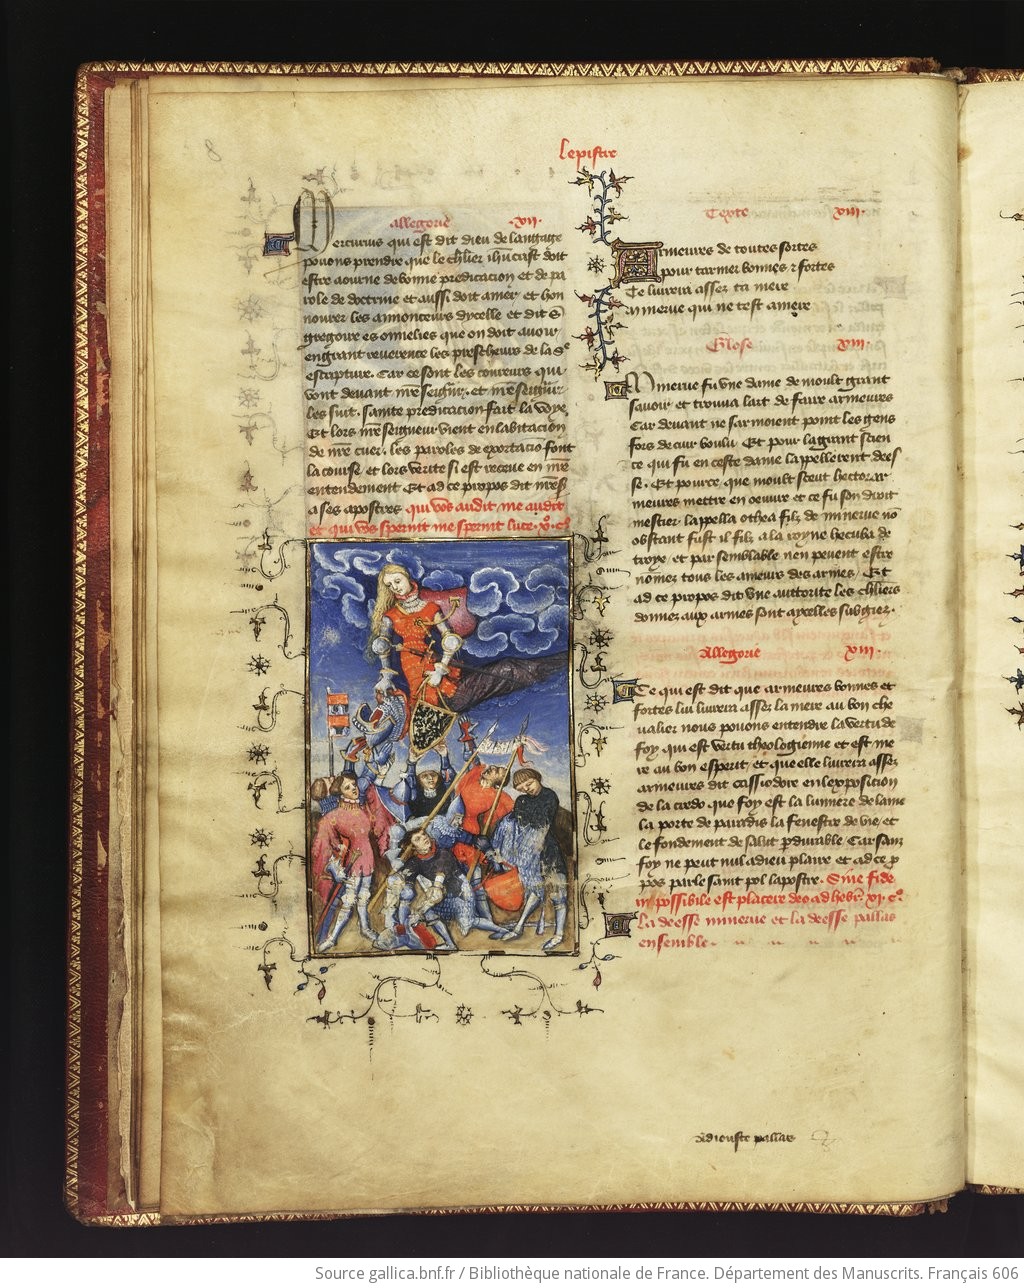 Lepistre
8
Allegorie .xii.
Mercurius qui est dit dieu de langage
pouons prendre que le chlier ihucrist doit
estre aourne de bonne predicacion et de pa
role de doctrine et aussi doit amer et hon
nourer les annonceurs dycelle et dit St
gregoire es omielies que on doit auoir
en grant reuerence les prescheurs de la Ste
escripture. Car ce sont les coureurs qui
vont deuant nre seigneur. et nre seigneur
les suit. Sainte predicacion fait la voye.
Et lors nre seigneur vient en labitacion
de nre cuer. les paroles de exortacio font
la course et lors verite si est receue en nre
entendement Et ad ce propos dit nre s
a ses apostres qui vos audit me audit
et qui vos spernit me spernit luce. xo. co
Texte xiii.
Armeures de toutes sortes
pour tarmer bonnes z fortes
Te liurera assez ta mere
minerue qui ne test amere
Glose xiii.
Minerue fu vne dame de moult grant
sauoir et trouua lart de faire armeures
Car deuant ne sarmoient point les gens
fors de cuir boulu Et pour la grant scien
ce qui fu en ceste dame lappellerent dees
se. Et pource que moult sceut hector ar
meures mettre en oeuure et ce fu son droit
mestier. lappella othea filz de minerue no
obstant fust il filz a la royne hecuba de
troye et par semblable nen peuent estre
nomez tous les ameurs des armes Et
ad ce propos dit vne auttorite les chliers
donnez aux armes sont aycelles subgiez.
Allegorie xiii.
Ce qui est dit que armeures bonnes et
fortes lui liurera assez la mere au bon che
ualier nous pouons entendre la vertu de
foy qui est vertu theologienne et est me
re au bon esperit et que elle liurera assez
armeures dit cassiodore en lexposicion
de la credo que foy est la lumiere de lame
la porte de paradis la fenestre de vie et
le fondement de salut pdurable Car sanz
foy ne peut nul a dieu plaire et ad ce p
pos parle saint pol lapostre. Sine fide
inpossibile est placere deo ad hebr. xi. co.
La deesse minerue et la deesse pallas
ensemble
Adiouste pallas
Source gallica.bnf.fr / Bibliothèque nationale de France. Département des Manuscrits. Français 606